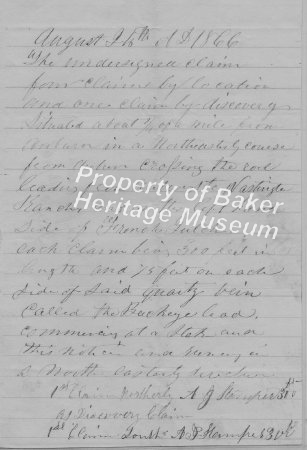 August 15th A D 1866
The undersigned claim
four claims by location
and one claim by discovery
Situated about of a mile from
Auburn in a Northeasterly course
from Auburn crossing the
leading Washington
Property of Baker
Heritage Museum
Side of French Gulch
each claim being 300 feet in
length and 75 feet on each
side of said quartz vein
called the Buckeye lead
commencing at a Stake and
this notice and running in
a North easterly direction
1st Claim Northerly A J Stampe 300 ft
as Discovery Claim
1st Claim South